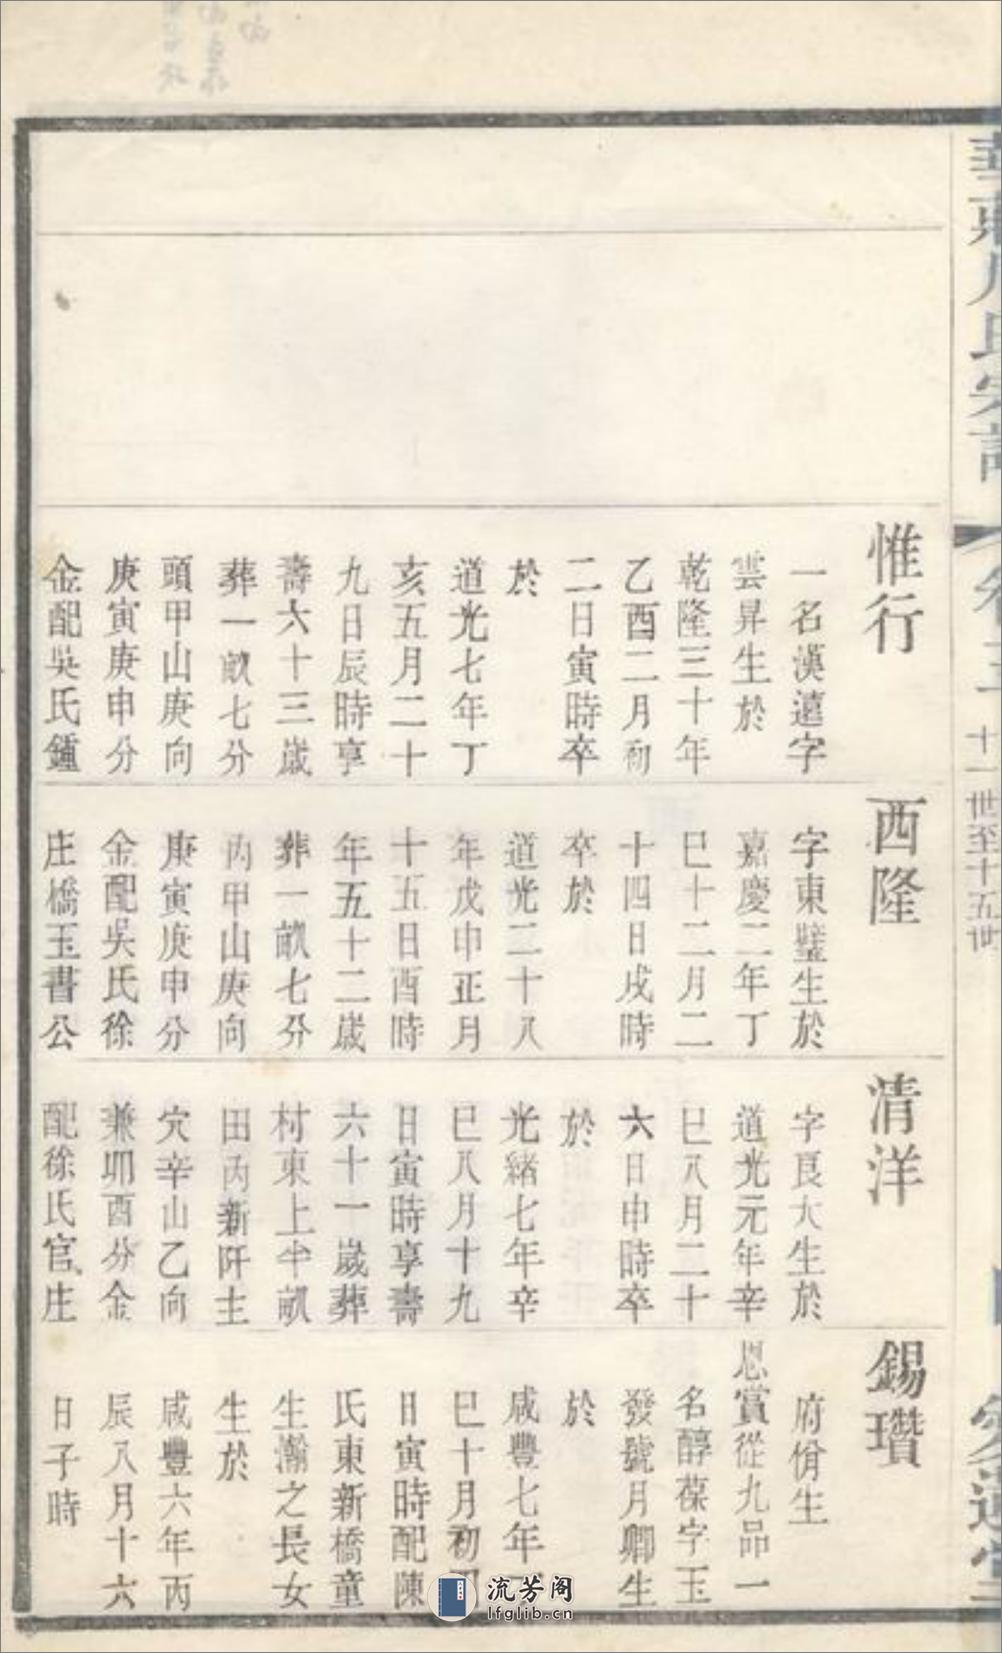 惟行
一名漢遠字
雲昇生於
乾隆三十年
乙酉二月初
二日寅時卒
於
道光七年丁
亥五月二十
九日辰時享
壽六十三歲
葬一畝七分
頭甲山庚向
庚寅庚申分
金配吳氏鍾
西隆
字東璧生於
嘉慶二年丁
巳十二月二
十四日戌時
卒於
道光二十八
年戊申正月
十五日酉時
年五十二歲
葬一畝七分
內甲山庚向
庚寅庚申分
金配吳氏徐
庄橋玉書公
清洋
字良大生於
道光元年辛
巳八月二十
六日申時卒
於
光緒七年辛
巳八月十九
日寅時享壽
六十一歲葬
村東上半畝
田內新阡主
穴辛山乙向
兼卯酉分金
配徐氏官庄
錫瓚
府佾生
恩賞從九品一
名醇葆字玉
發號月卿生
於
咸豐七年
巳十月初
日寅時配陳
氏東新橋童
生瀚之長女
生於
咸豐六年丙
辰八月十六
日子時
十一世至十五世
流芳阁
lfglib.cn